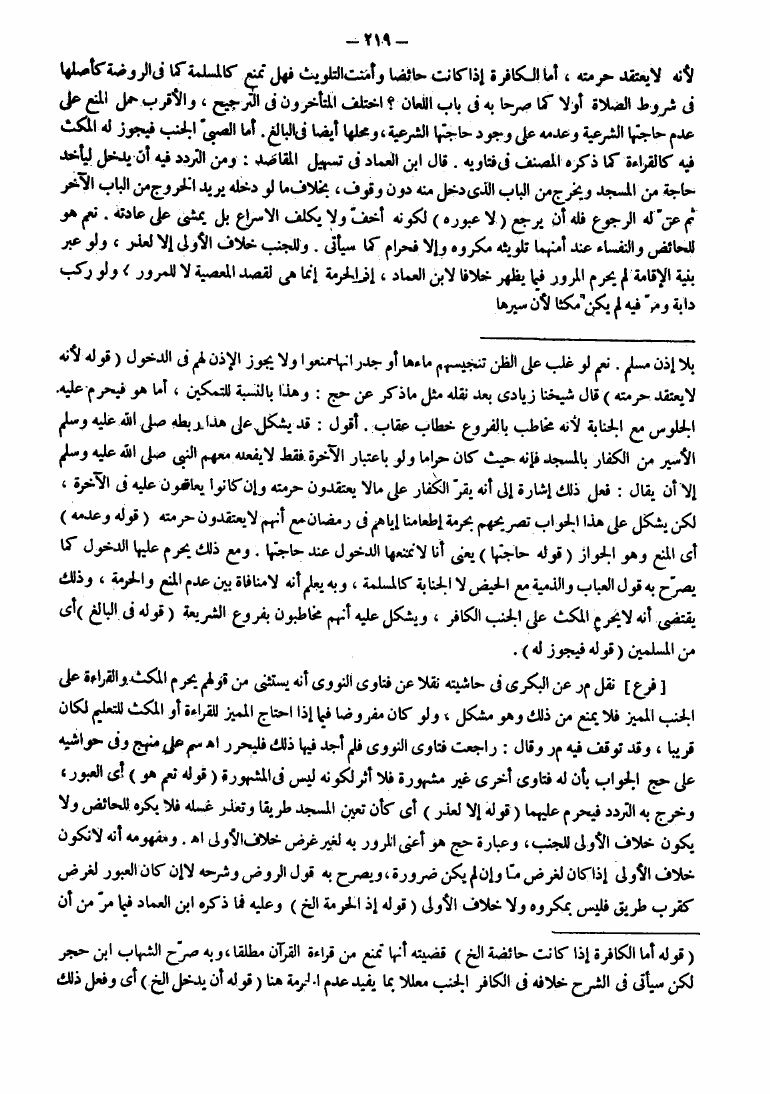 — ٢١٩ —
لأنه لايعتقد حرمته ، أما الكافرة إذا كانت حائضا وأمنت التلويث فهل تمنع كالمسلمة كما فى الروضة كأصلها
فى شروط الصلاة أولا كما صرحا به فى باب اللعان ؟ اختلف المتأخرون فى الترجيح ، والأقرب حمل المنع على
عدم حاجتها الشرعية وعدمه على وجود حاجتها الشرعية ، ومحلها أيضا فى البالغ . أما الصبىّ الجنب فيجوز له المكث
فيه كالقراءة كما ذكره المصنف فى فتاويه . قال ابن العماد فى تسهيل المقاصد : ومن التردد فيه أن يدخل ليأخذ
حاجة من المسجد ويخرج من الباب الذى دخل منه دون وقوف ، بخلاف ما لو دخله يريد الخروج من الباب الآخر
ثم عنّ له الرجوع فله أن يرجع ( لا عبوره ) لكونه أخفّ ولا يكلف الاسراع بل يمشى على عادته . نعم هو
للحائض والنفساء عند أمنهما تلويثه مكروه وإلا فحرام كما سيأتى . وللجنب خلاف الأولى إلا لعذر ، ولو عبر
بنية الإقامة لم يحرم المرور فيما يظهر خلافا لابن العماد ، إذ الحرمة إنما هى لقصد المعصية لا للمرور ، ولو ركب
دابة ومرّ فيه لم يكن مكثا لأن سيرها
بلا إذن مسلم . نعم لو غلب على الظن تنجيسهم ماءها أو جدرانها منعوا ولا يجوز الإذن لهم فى الدخول ( قوله لأنه
لايعتقد حرمته ) قال شيخنا زيادى بعد نقله مثل ماذكر عن حج : وهذا بالنسبة للتمكين ، أما هو فيحرم عليه
الجلوس مع الجنابة لأنه مخاطب بالفروع خطاب عقاب . أقول : قد يشكل على هذا ربطه صلى الله عليه وسلم
الأسير من الكفار بالمسجد فإنه حيث كان حراما ولو باعتبار الآخرة فقط لايفعله معهم النبى صلى الله عليه وسلم
إلا أن يقال : فعل ذلك إشارة إلى أنه يقرّ الكفار على مالا يعتقدون حرمته وإن كانوا يعاقبون عليه فى الآخرة ،
لكن يشكل على هذا الجواب تصريحهم بحرمة إطعامنا إياهم فى رمضان مع أنهم لايعتقدون حرمته ( قوله وعدمه )
أى المنع وهو الجواز ( قوله حاجتها ) يعنى أنا لانمنعها الدخول عند حاجتها . ومع ذلك يحرم عليها الدخول كما
يصرّح به قول العباب والذمية مع الحيض لا الجنابة كالمسلمة ، وبه يعلم أنه لامنافاة بين عدم المنع والحرمة ، وذلك
يقتضى أنه لايحرم المكث على الجنب الكافر ، ويشكل عليه أنهم مخاطبون بفروع الشريعة ( قوله فى البالغ ) أى
من المسلمين ( قوله فيجوز له ) .
[ فرع ] نقل مر عن البكرى فى حاشيته نقلا عن فتاوى النووى أنه يستثنى من قولهم يحرم المكث والقراءة على
الجنب المميز فلا يمنع من ذلك وهو مشكل ، ولو كان مفروضا فيما إذا احتاج المميز للقراءة أو المكث للتعليم لكان
قريبا ، وقد توقف فيه مر وقال : راجعت فتاوى النووى فلم أجد فيها ذلك فليحرر اهـ سم على منهج وفى حواشيه
على حج الجواب بأن له فتاوى أخرى غير مشهورة فلا أثر لكونه ليس فى المشهورة ( قوله نعم هو ) أى العبور ،
وخرج به التردد فيحرم عليهما ( قوله إلا لعذر ) أى كأن تعين المسجد طريقا وتعذر غسله فلا يكره للحائض ولا
يكون خلاف الأولى للجنب ، وعبارة حج هو أعنى المرور به لغير غرض خلاف الأولى اهـ . ومفهومه أنه لايكون
خلاف الأولى إذا كان لغرض مّا وإن لم يكن ضرورة ، ويصرح به قول الروض وشرحه لا إن كان العبور لغرض
كقرب طريق فليس بمكروه ولا خلاف الأولى ( قوله إذ الحرمة الخ ) وعليه فما ذكره ابن العماد فيما مرّ من أن
( قوله أما الكافرة إذا كانت حائضة الخ ) قضيته أنها تمنع من قراءة القرآن مطلقا ، وبه صرّح الشهاب ابن حجر
لكن سيأتى فى الشرح خلافه فى الكافر الجنب معللا بما يفيد عدم الحرمة هنا ( قوله أن يدخل الخ ) أى وفعل ذلك